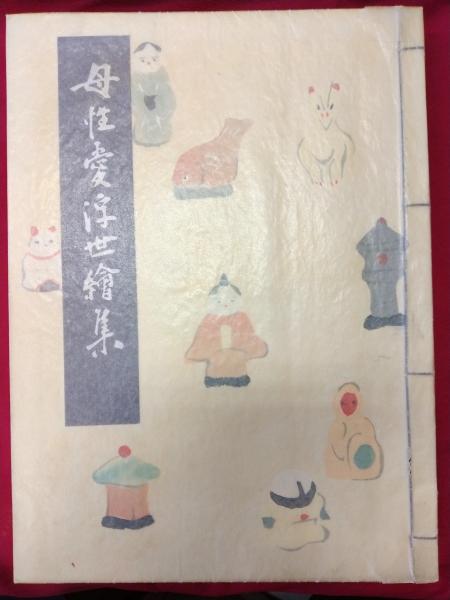 母性愛浮世繪集